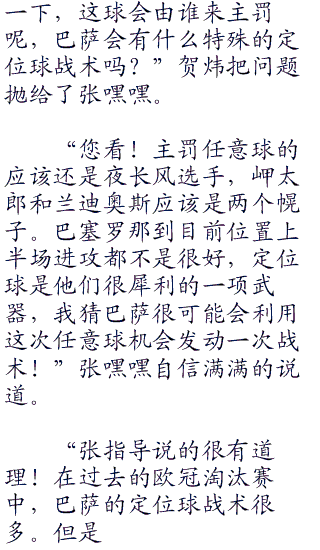 一下，这球会由谁来主罚
呢，巴萨会有什么特殊的定
位球战术吗？”贺炜把问题
抛给了张嘿嘿。
“您看！主罚任意球的
应该还是夜长风选手，岬太
郎和兰迪奥斯应该是两个幌
子。巴塞罗那到目前位置上
半场进攻都不是很好，定位
球是他们很犀利的一项武
器，我猜巴萨很可能会利用
这次任意球机会发动一次战
术！”张嘿嘿自信满满的说
道。
“张指导说的很有道
理！在过去的欧冠淘汰赛
中，巴萨的定位球战术很
多。但是